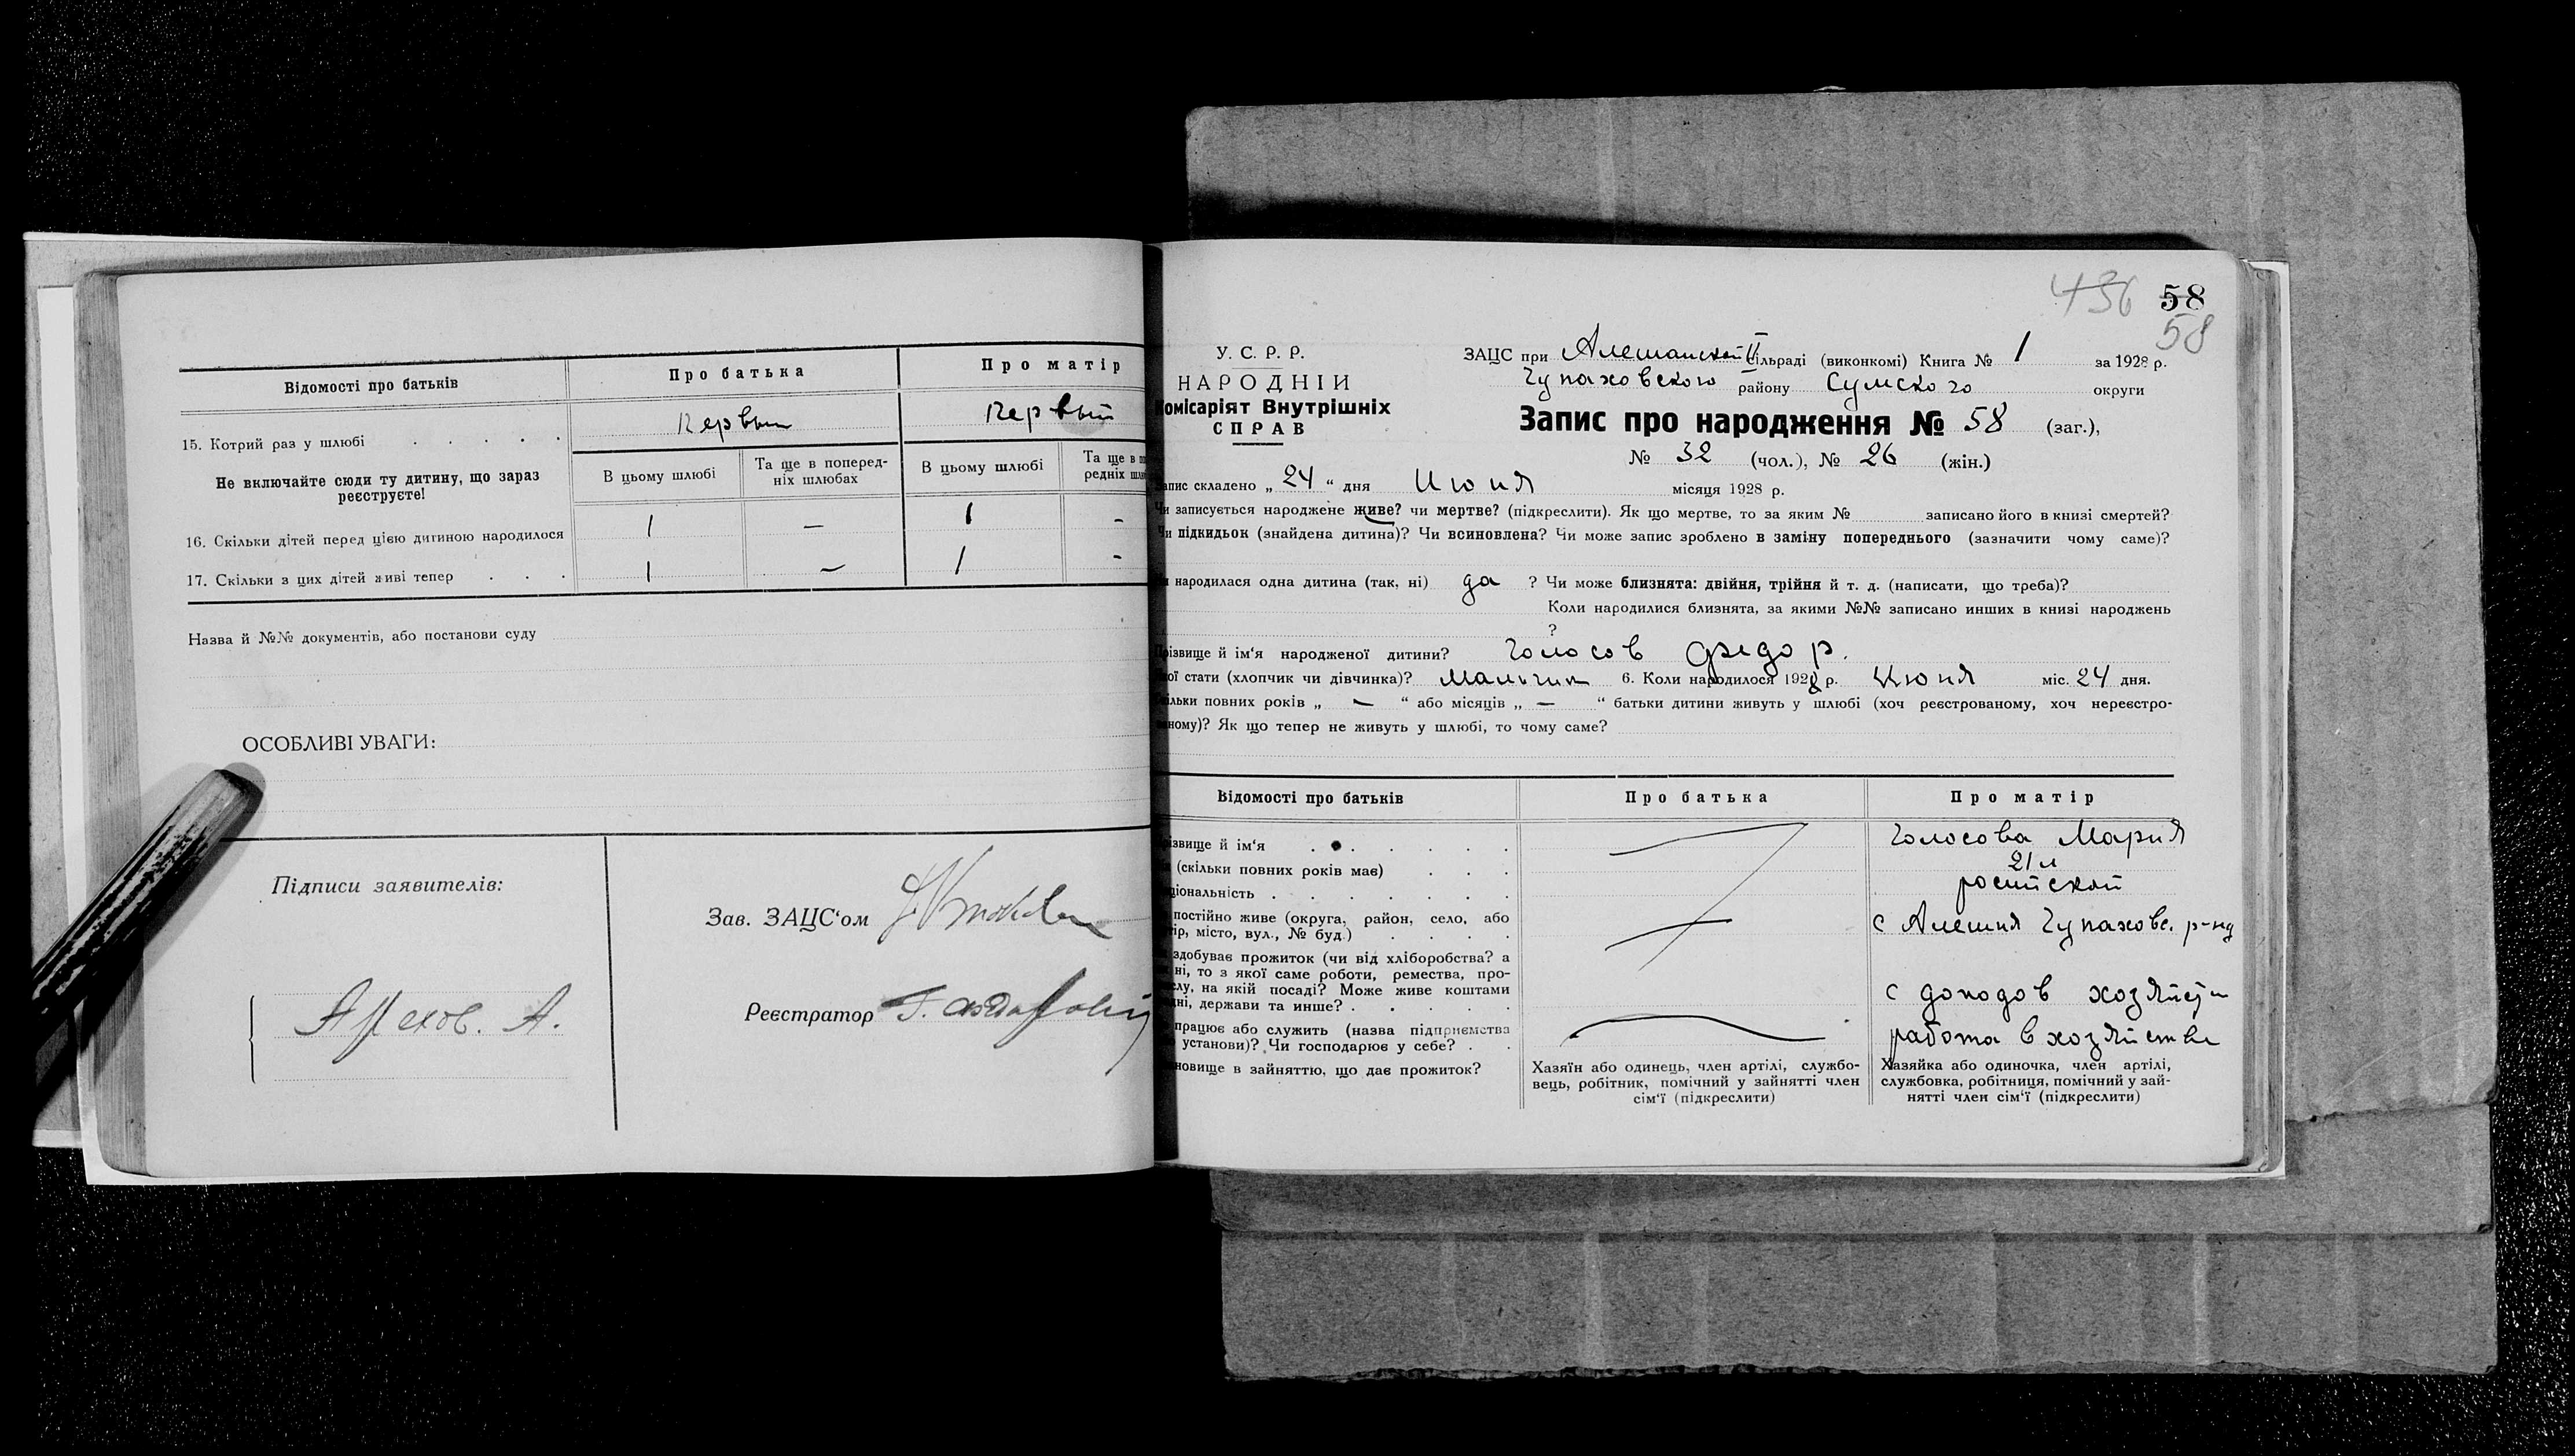 Відомості про батьків
Про батька
Про матір
15. Котрий раз у шлюбі
Первый
Первый
Не включайте сюди ту дитину, що зараз
реєструєте!
В цьому шлюбі
Та ще в поперед-
ніх шлюбах
В цьому шлюбі
Та ще в
редніх
16. Скільки дітей перед цією дитиною народилося
1 — 1 -
17. Скільки з цих дітей живі тепер
1 — 1 -
Назва й №№ документів, або постанови суду
ОСОБЛИВІ УВАГИ:
Підписи заявителів:
А.
Зав. ЗАЦС‘ом
Реєстратор
436 58
58
У. С. Р. Р.
НАРОДНІЙ
омісаріят Внутрішніх
СПРАВ
ЗАЦС при Алешанской II сільраді (виконкомі) Книга № 1 за 1928 р.
Чупаховского району Сумского округи
Запис про народження № 58 (заг.),
№ 32 (чол.), № 26 (жін.)
апис складено „ 24 “ дня Июня місяця 1928 р.
и записується народжене живе? чи мертве? (підкреслити). Як що мертве, то за яким № записано його в книзі смертей?
и підкидьок (знайдена дитина)? Чи всиновлена? Чи може запис зроблено в заміну попереднього (зазначити чому саме)?
народилася одна дитина (так, ні) да ? Чи може близнята: двійня, трійня й т. д. (написати, що треба)?
Коли народилися близнята, за якими №№ записано инших в книзі народжень
?
різвище й ім‘я народженої дитини? Голосов Федор.
ої стати (хлопчик чи дівчинка)? Мальчик 6. Коли народилося 1928 р. Июня міс. 24 дня.
ільки повних років „ — “ або місяців „ — “ батьки дитини живуть у шлюбі (хоч реєстрованому, хоч нереєстро-
ному)? Як що тепер не живуть у шлюбі, то чому саме?
Відомості про батьків
Про батька
Про матір
ізвище й ім‘я
Голосова Мария
(скільки повних років має)
21 л
ціональність
российской
постійно живе (округа, район, село, або
ір, місто, вул., № буд.)
с Алешня Чупаховс. р-на
здобуває прожиток (чи від хліборобства? а
ні, то з якої саме роботи, ремества, про-
слу, на якій посаді? Може живе коштами
дні, держави та инше?
с доходов
працює або служить (назва підприємства
установи)? Чи господарює у себе?
работа в хозяйстве
новище в зайняттю, що дає прожиток?
Хазяїн або одинець, член артілі, службо-
вець, робітник, помічний у зайнятті член
сім‘ї (підкреслити)
Хазяйка або одиночка, член артілі,
службовка, робітниця, помічний у зай-
нятті член сім‘ї (підкреслити)